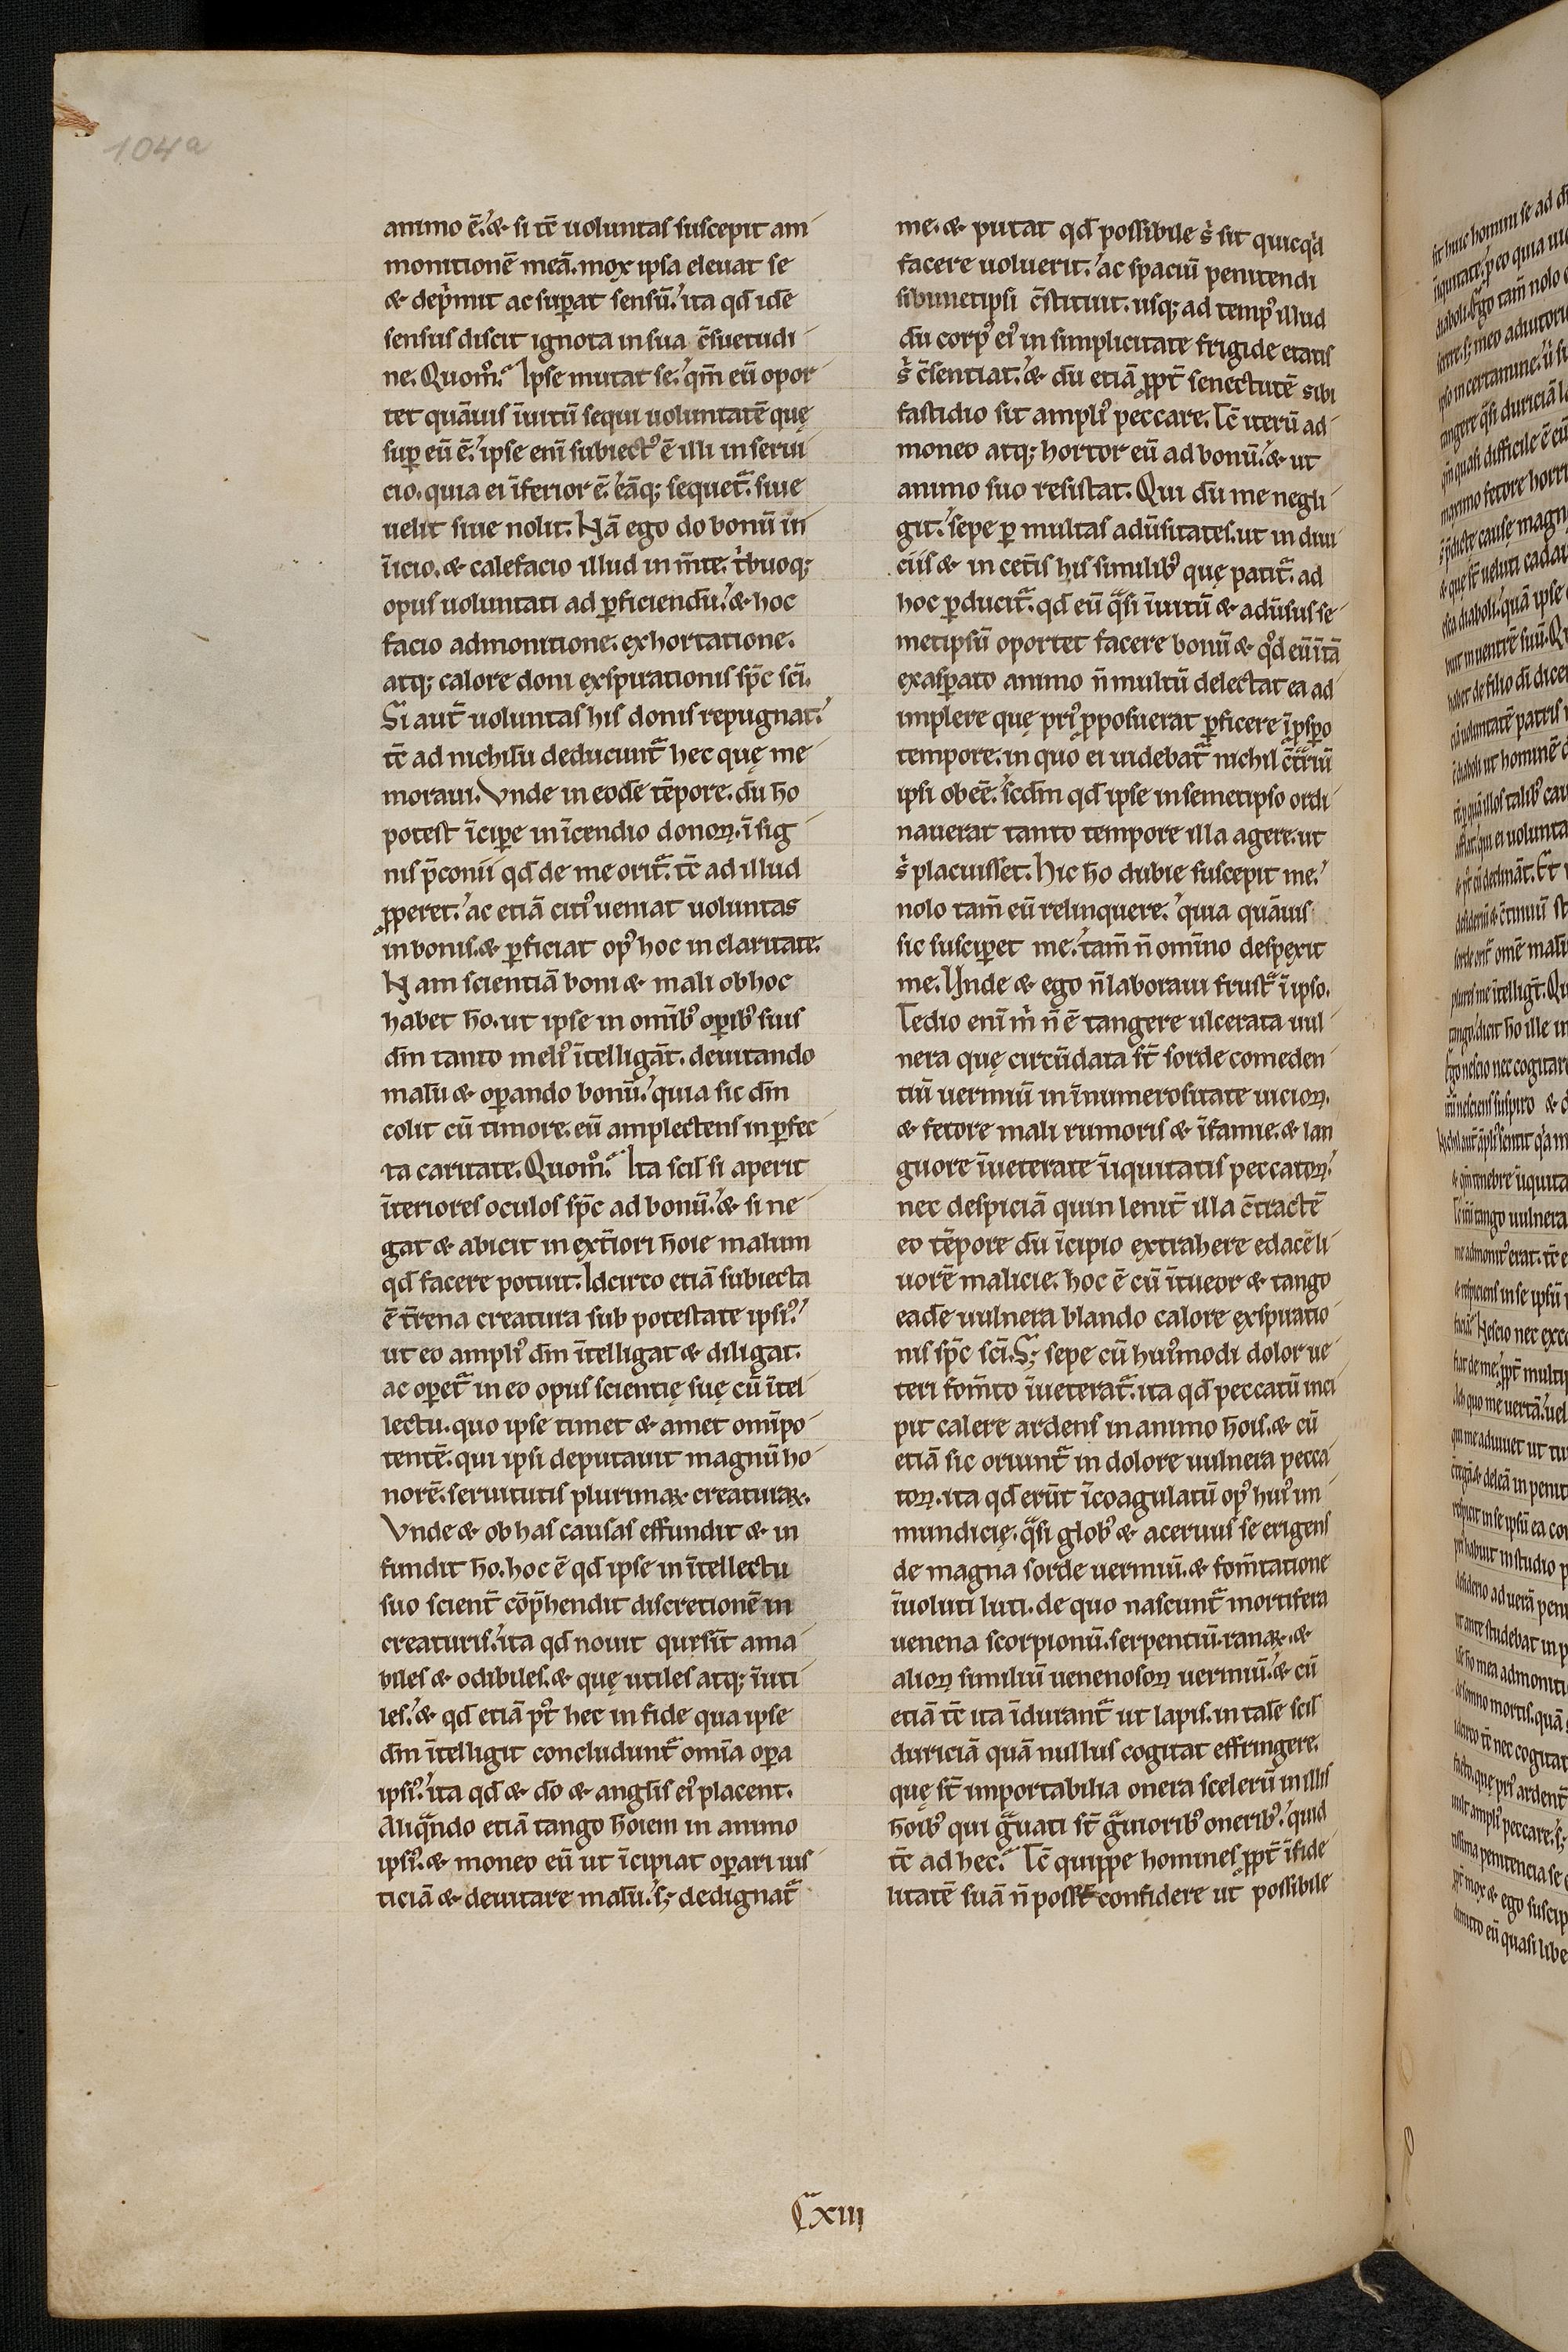 104a
animo ē. & si tc̄ uoluntas suscepit am
monitionē meā. mox ipsa eleuat se
& dep̄mit ac sup̱at sensū. ita qd̄ idē
sensus discit ignota in sua c̄suetudi
ne. Quom̊. Ipse mutat se. qm̄ eū opor
tet quāuis īuitū sequi uoluntatē quę
sup̱ eū ē. ipse eni subiectꝰ ē illi in serui
cio. quia ei īferior ē. eāq; sequet᷑. siue
uelit siue nolit. Nā ego do bonū in
īicio. & calefacio illud in m̄te. tͥbuoq;
opus uoluntati ad p̱ficiendū. & hoc
facio admonitione. exhortatione.
atq; calore doni exspirationis sp̄c sc̄i.
Si aut̄ uoluntas his donis repugnat.
tc̄ ad nichilū deducunt᷑ hec quę me
moraui. Vnde in eodē tēpore. dū h̄o
potest īcipe in īcendio donoꝝ. ī sig
nis p̄conii qd̄ de me orit᷑. tc̄ ad illud
ꝓperet. ac etiā citiꝰ ueniat uoluntas
in bonis. & p̱ficiat opꝰ hoc in claritate.
Nam scientiā boni & mali ob hoc
habet h̄o. ut ipse in omībꝰ op̱ibꝰ suis
dm̄ tanto meliꝰ ītelligāt. deuitando
malū & op̱ando bonū. quia sic dm̄
colit cū timore. eū amplectens in p̱fec
ta caritate. Quom̊. Ita scil si aperit
īteriores oculos sp̄c ad bonū. & si ne
gat & abicit in ext̄iori hoīe malum
qd̄ facere potuit. Idcirco etiā subiecta
ē t̄rena creatura sub potestate ipsiꝰ.
ut eo ampliꝰ dm̄ ītelligat & diligat.
ac op̱et᷑ in eo opus scientię suę cū ītel
lectu. quo ipse timet & amet omīpo
tentē. qui ipsi deputauit magnū ho
norē. seruitutis plurimaꝝ creaturaꝝ.
Vnde & ob has causas effundit & in
fundit h̄o. hoc ē qd̄ ipse in ītellectu
suo scient̄ cōp̄hendit discretionē in
creaturis. ita qd̄ nouit que sīt ama
biles & odibiles. & quę utiles atq; īuti
les. & qd̄ etiā pꝰt hec in fide qua ipse
dm̄ ītelligit concludunt᷑ omīa op̱a
ipsiꝰ. ita qd̄ & dō & anglīs eiꝰ placent.
Aliqͣndo etiā tango hoīem in animo
ipsiꝰ. & moneo eū ut īcipiat op̱ari ius
ticiā & deuitare malū. s; dedignat᷑
me. & putat qd̄ possibile s̊ sit quicqͥd
facere uoluerit. ac spaciū penitendi
sibimetipsi c̄stituit. usq; ad tempꝰ illud
dū corpꝰ eiꝰ in simplicitate frigide etatis
s̊ c̄sentiat. & dū etiā ꝓpt̄ senectutē sibi
fastidio sit ampliꝰ peccare. Tc̄ iterū ad
moneo atq; hortor eū ad bonū. & ut
animo suo resistat. Qui dū me negli
git. sepe p̱ multas adūsitates. ut in diui
ciis & in cet̄is his similibꝰ quę patit᷑. ad
hoc p̱ducit᷑. qd̄ eū qͣsi īuitū & adūsus se
metipsū oportet facere bonū & qͦd eū ītā
exasp̱ato animo n̄ multū delectat ea ad
implere quę priꝰ ꝓposuerat p̱ficere ip̄spo
tempore. in quo ei uidebat᷑ nichil c̄t͡riū
ipsi obeē. scd̄m qd̄ ipse in semetipso ordi
nauerat tanto tempore illa agere. ut
s̊ placuisset. Hic h̄o dubie suscepit me.
nolo tam̄ eū relinquere. quia quāuis
sic susciperet me. tam̄ n̄ omīno despexit
me. Unde & ego n̄ laboraui frustͣ ī ipso.
Tedio enī m̊ n̄ ē tangere ulcerata uul
nera quę circūdata st̄ sorde comeden
tiū uermiū in īnumerositate uicioꝝ.
& fetore mali rumoris & īfamie. & lan
guore īueterate īiquitatis peccatoꝝ.
nec despiciā quin lenit̄ illa c̄tractē
eo tēpore dū īcipio extrahere edacē li
uorē malicie. hoc ē cū ītueor & tango
eadē uulnera blando calore exspiratio
nis sp̄c sc̄i. S; sepe cū huiꝰmodi dolor ue
teri fom̄to īueterat᷑. ita qd̄ peccatū inci
pit calere ardens in animo hoīs. & cū
etiā sic oriunt᷑ in dolore uulnera pecca
toꝝ. ita qd̄ erūt īcoagulatū opꝰ huiꝰ im
mundicię. qͣsi globꝰ & aceruus se erigens
de magna sorde uermiū. & fom̄tatione
īuoluti luti. de quo nascunt᷑ mortifera
uenena scorpionū. serpentiū. ranaꝝ. &
alioꝝ similiū uenenosoꝝ uermiū. & cū
etiā tc̄ ita īdurant᷑ ut lapis. in talē scil
duriciā quā nullus cogitat effringere.
quę st̄ importabilia onera scelerū in illis
hoībꝰ qui gͣuati st̄ gͣuioribꝰ oneribꝰ. quid
tc̄ ad hec. Tc̄ quippe homines ꝓpt̄ īfide
litatē suā n̄ posst̄ confidere ut possibile
Cxiii